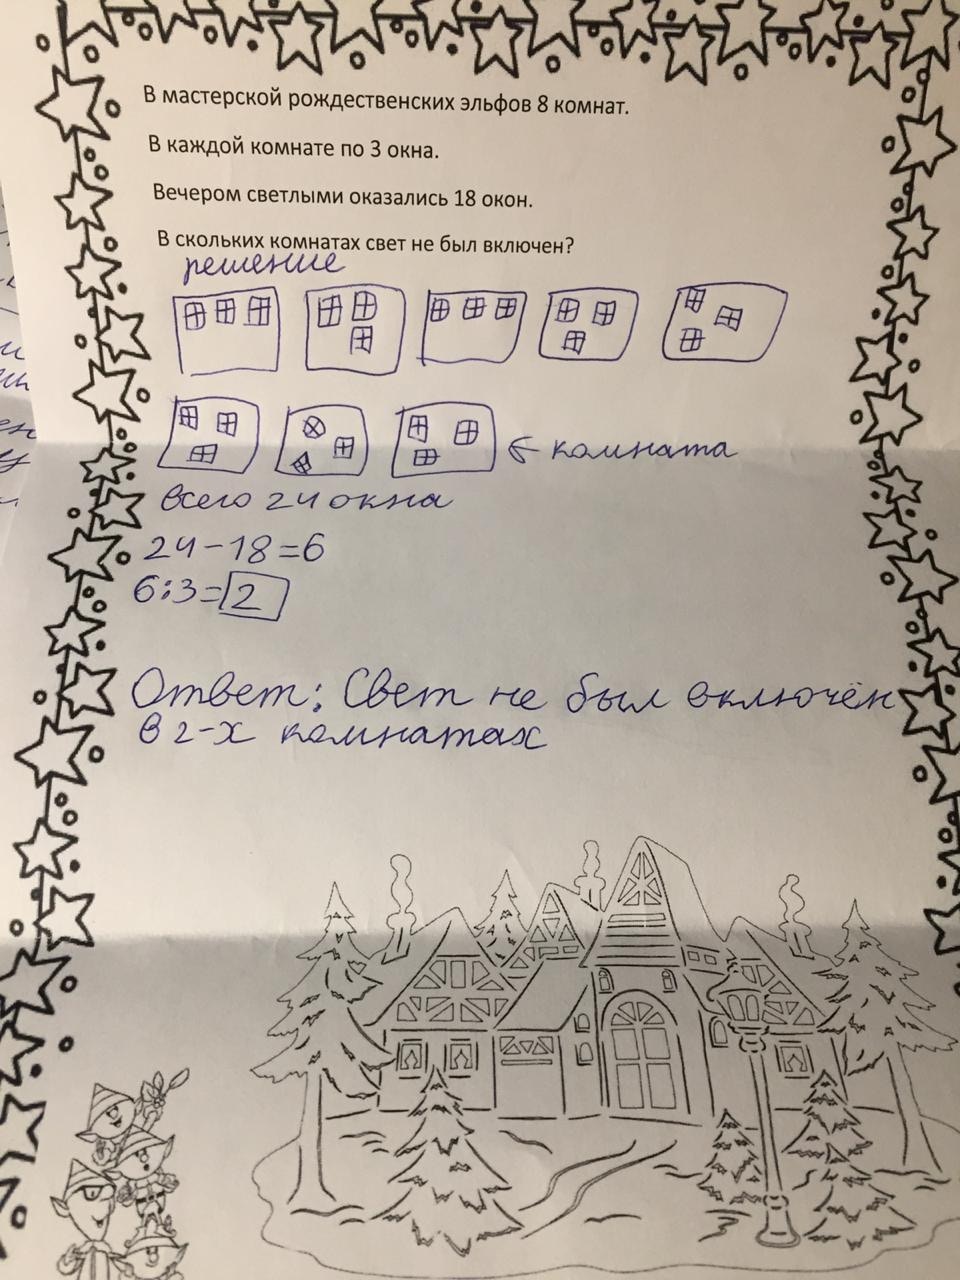 В мастерской рождественских эльфов 8 комнат.
В каждой комнате по 3 окна.
Вечером светлыми оказались 18 окон.
В скольких комнатах свет не был включен?
решение
← комната
всего 24 окна
24-18=6
6:3=2
Ответ: Свет не был включён
в 2-х комнатах